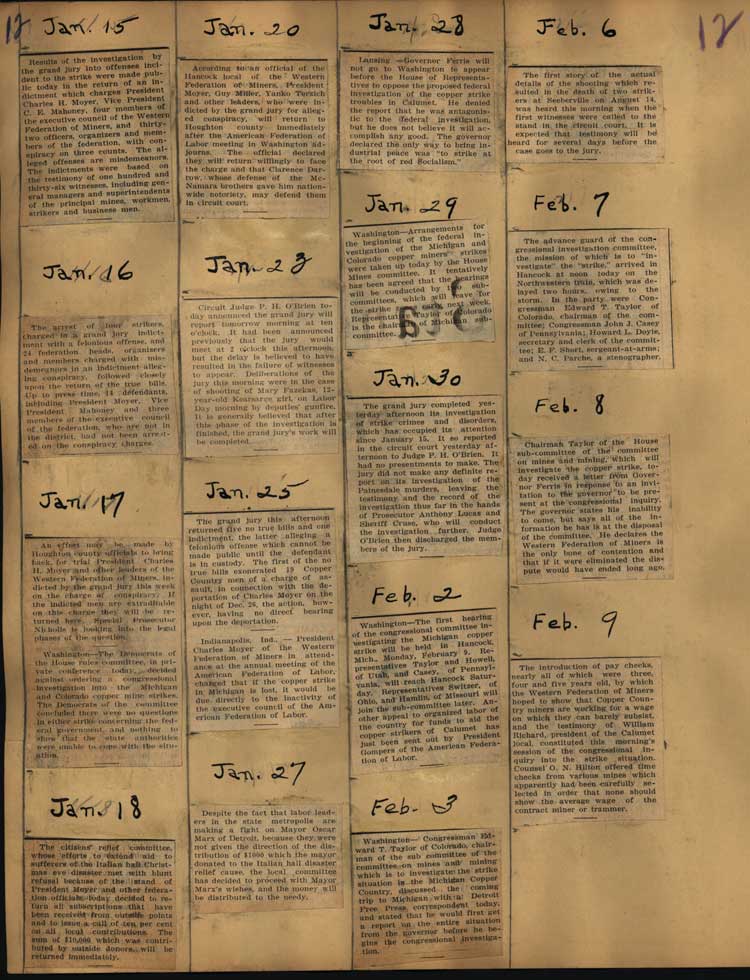 12
Jan. 15
Results of the investigation by
the grand jury into offenses inci-
dent to the strike were made pub-
lic today in the return of an in-
dictment which charges President
Charles H. Moyer, Vice President
C. E. Mahoney, four members of
the executive council of the Western
Federation of Miners, and thirty-
two officers, organizers and mem-
bers of the federation, with con-
spiracy on three counts. The al-
leged offenses are misdemeanors.
The indictments were based on
the testimony of one hundred and
thirty-six witnesses, including gen-
eral managers and superintendents
of the principal mines, workmen,
strikers and business men.
Jan. 16
The arrest of four strikers,
charged in a grand jury indict-
ment with a felonious offense, and
24 federation heads, organizers
and members charged with mis-
demeanors in an indictment alleg-
ing conspiracy, followed closely
upon the return of the true bills.
Up to press time, 14 defendants,
including President Moyer, Vice
President Mahoney and three
members of the executive council
of the federation, who are not in
the district, had not been arrest-
ed on the conspiracy charges.
Jan. 17
An effort may be made by
Houghton county officials to bring
back, for trial President Charles
H. Moyer and other leaders of the
Western Federation of Miners, in-
dicted by the grand jury this week
on the charge of conspiracy. If
the indicted men are extraditable
on this charge they will be re-
turned here. Special Prosecutor
Nichols is looking into the legal
phases of the question.
Washington—The Democrats of
the House rules committee, in pri-
vate conference today, decided
against ordering a congressional
investigation into the Michigan
and Colorado mine strikes.
The Democrats of the committee
concluded there were no questions
in either strike concerning the fed-
eral government, and nothing to
show that the state authorities
were unable to cope with the situ-
ation.
Jan. 18
The citizens' relief committee,
whose efforts to extend aid to
sufferers of the Italian hall Christ-
mas eve disaster met with blunt
refusal because of the stand of
President Moyer and other federa-
tion officials, today decided to re-
turn all subscriptions that have
been received from outside points
and to issue a call of ten per cent
on all local contributions. The
sum of $10,000 which was contri-
buted by outside donors, will be
returned immediately.
Jan. 20
According to an official of the
Hancock local of the Western
Federation of Miners, President
Moyer, Guy Miller, Yanko Terzich
and other leaders, who were in-
dicted by the grand jury for alleg-
ed conspiracy, will return to
Houghton county immediately
after the American Federation of
Labor meeting in Washington ad-
journs. The official declared
they will return willingly to face
the charge and that Clarence Dar-
row, whose defense of the Mc-
Namara brothers gave him nation-
wide notoriety, may defend them
in circuit court.
Jan. 23
Circuit Judge P. H. O'Brien to-
day announced the grand jury will
report tomorrow morning at ten
o'clock. It had been announced
previously that the jury would
meet at 2 o'clock this afternoon,
but the delay is believed to have
resulted in the failure of witnesses
to appear. Deliberations of the
jury this morning were in the case
of shooting of Mary Fazekas, 12-
year-old Kearsarge girl, on Labor
Day morning by deputies' gunfire.
It is generally believed that after
this phase of the investigation is
finished, the grand jury's work will
be completed.
Jan. 25
The grand jury this afternoon
returned five no true bills and one
indictment, the latter alleging a
felonious offense which cannot be
made public until the defendant
is in custody. The first of the no
true bills exonerated 19 Copper
Country men of a charge of as-
sault, in connection with the de-
portation of Charles Moyer on the
night of Dec. 26, the action, how-
ever, having no direct bearing
upon the deportation.
Indianapolis, Ind., — President
Charles Moyer of the Western
Federation of Miners in attend-
ance at the annual meeting of the
American Federation of Labor,
charged that if the copper strike
in Michigan is lost, it would be
due directly to the inactivity of
the executive council of the Am-
erican Federation of Labor.
Jan. 27
Despite the fact that labor lead-
ers in the state metropolis are
making a fight on Mayor Oscar
Marx of Detroit, because they were
not given the direction of the dis-
tribution of $1000 which the mayor
donated to the Italian hall disaster
relief cause, the local committee
has decided to proceed with Mayor
Marx's wishes, and the money will
be distributed to the needy.
Jan. 28
Lansing —Governor Ferris will
not go to Washington to appear
before the House of Representa-
tives to oppose the proposed federal
investigation of the copper strike
troubles in Calumet. He denied
the report that he was antagonis-
tic to the federal investigation,
but he does not believe it will ac-
complish any good. The governor
declared the only way to bring in-
dustrial peace was "to strike at
the root of red Socialism."
Jan. 29
Washington—Arrangements for
the beginning of the federal in-
vestigation of the Michigan and
Colorado copper miners' strikes
were taken up today by the House
Mines committee. It tentatively
has been agreed that the hearings
will be conducted by sub-
committees, which will leave for
the strike next week.
Representative Taylor of Colorado
is the chairman of Michigan sub-
committee.
Jan. 30
The grand jury completed yes-
terday afternoon its investigation
of strike crimes and disorders,
which has occupied its attention
since January 15. It so reported
in the circuit court yesterday af-
ternoon to Judge P. H. O'Brien. It
had no presentments to make. The
jury did not make any definite re-
port on its investigation of the
Painesdale murders, leaving the
testimony and the record of the
investigation thus far in the hands
of Prosecutor Anthony Lucas and
Sheriff Cruse, who will conduct
the investigation further. Judge
O'Brien then discharged the mem-
bers of the jury.
Feb. 2
Washington—The first hearing
of the congressional committee in-
vestigating the Michigan copper
strike will be held in Hancock,
Mich., Monday, February 9. Re-
presentatives Taylor and Howell,
of Utah, and Casey, of Pennsyl-
vania, will reach Hancock Satur-
day. Representatives Switzer, of
Ohio, and Hamlin, of Missouri will
join the sub-committee later. An-
other appeal to organized labor of
the country for funds to aid the
copper strikers of Calumet has
just been sent out by President
Gompers of the American Federa-
tion of Labor.
Feb. 3
Washington— Congressman Ed-
ward T. Taylor of Colorado, chair-
man of the sub committee of the
committee on mines and mining
which is to investigate the strike
situation in the Michigan Copper
Country, discussed the coming
trip to Michigan with a Detroit
Free Press correspondent today,
and stated that he would first get
a report on the entire situation
from the governor before he be-
gins the congressional investiga-
tion.
Feb. 6
The first story of the actual
details of the shooting which re-
sulted in the death of two strik-
ers at Seeberville on August 14,
was heard this morning when the
first witnesses were called to the
stand in the circuit court. It is
expected that testimony will be
heard for several days before the
case goes to the jury.
Feb. 7
The advance guard of the con-
gressional investigation committee,
the mission of which is to "in-
vestigate" the "strike," arrived in
Hancock at noon today on the
Northwestern train, which was de-
layed two hours, owing to the
storm. In the party were Con-
gressman Edward T. Taylor of
Colorado, chairman of the com-
mittee; Congressman John J. Casey
of Pennsylvania; Howard L. Doyle,
secretary and clerk of the commit-
tee; E. F. Short, sergeant-at-arms;
and N. C. Parche, a stenographer.
Feb. 8
Chairman Taylor of the House
sub-committee of the committee
on mines and mining, which will
investigate the copper strike, to-
day received a letter from Gover-
nor Ferris in response to an invi-
tation to the governor to be pre-
sent at the congressional inquiry.
The governor states his inability
to come, but says all of the in-
formation he has is at the disposal
of the committee. He declares the
Western Federation of Miners is
the only bone of contention and
that if it were eliminated the dis-
pute would have ended long ago.
Feb. 9
The introduction of pay checks,
nearly all of which were three,
four and five years old, by which
the Western Federation of Miners
hoped to show that Copper Coun-
try miners are working for a wage
on which they can barely subsist,
and the testimony of William
Richard, president of the Calumet
local, constituted this morning's
session of the congressional in-
quiry into the strike situation.
Counsel O. N. Hilton offered time
checks from various mines which
apparently had been carefully se-
lected in order that none should
show the average wage of the
contract miner or trammer.
12